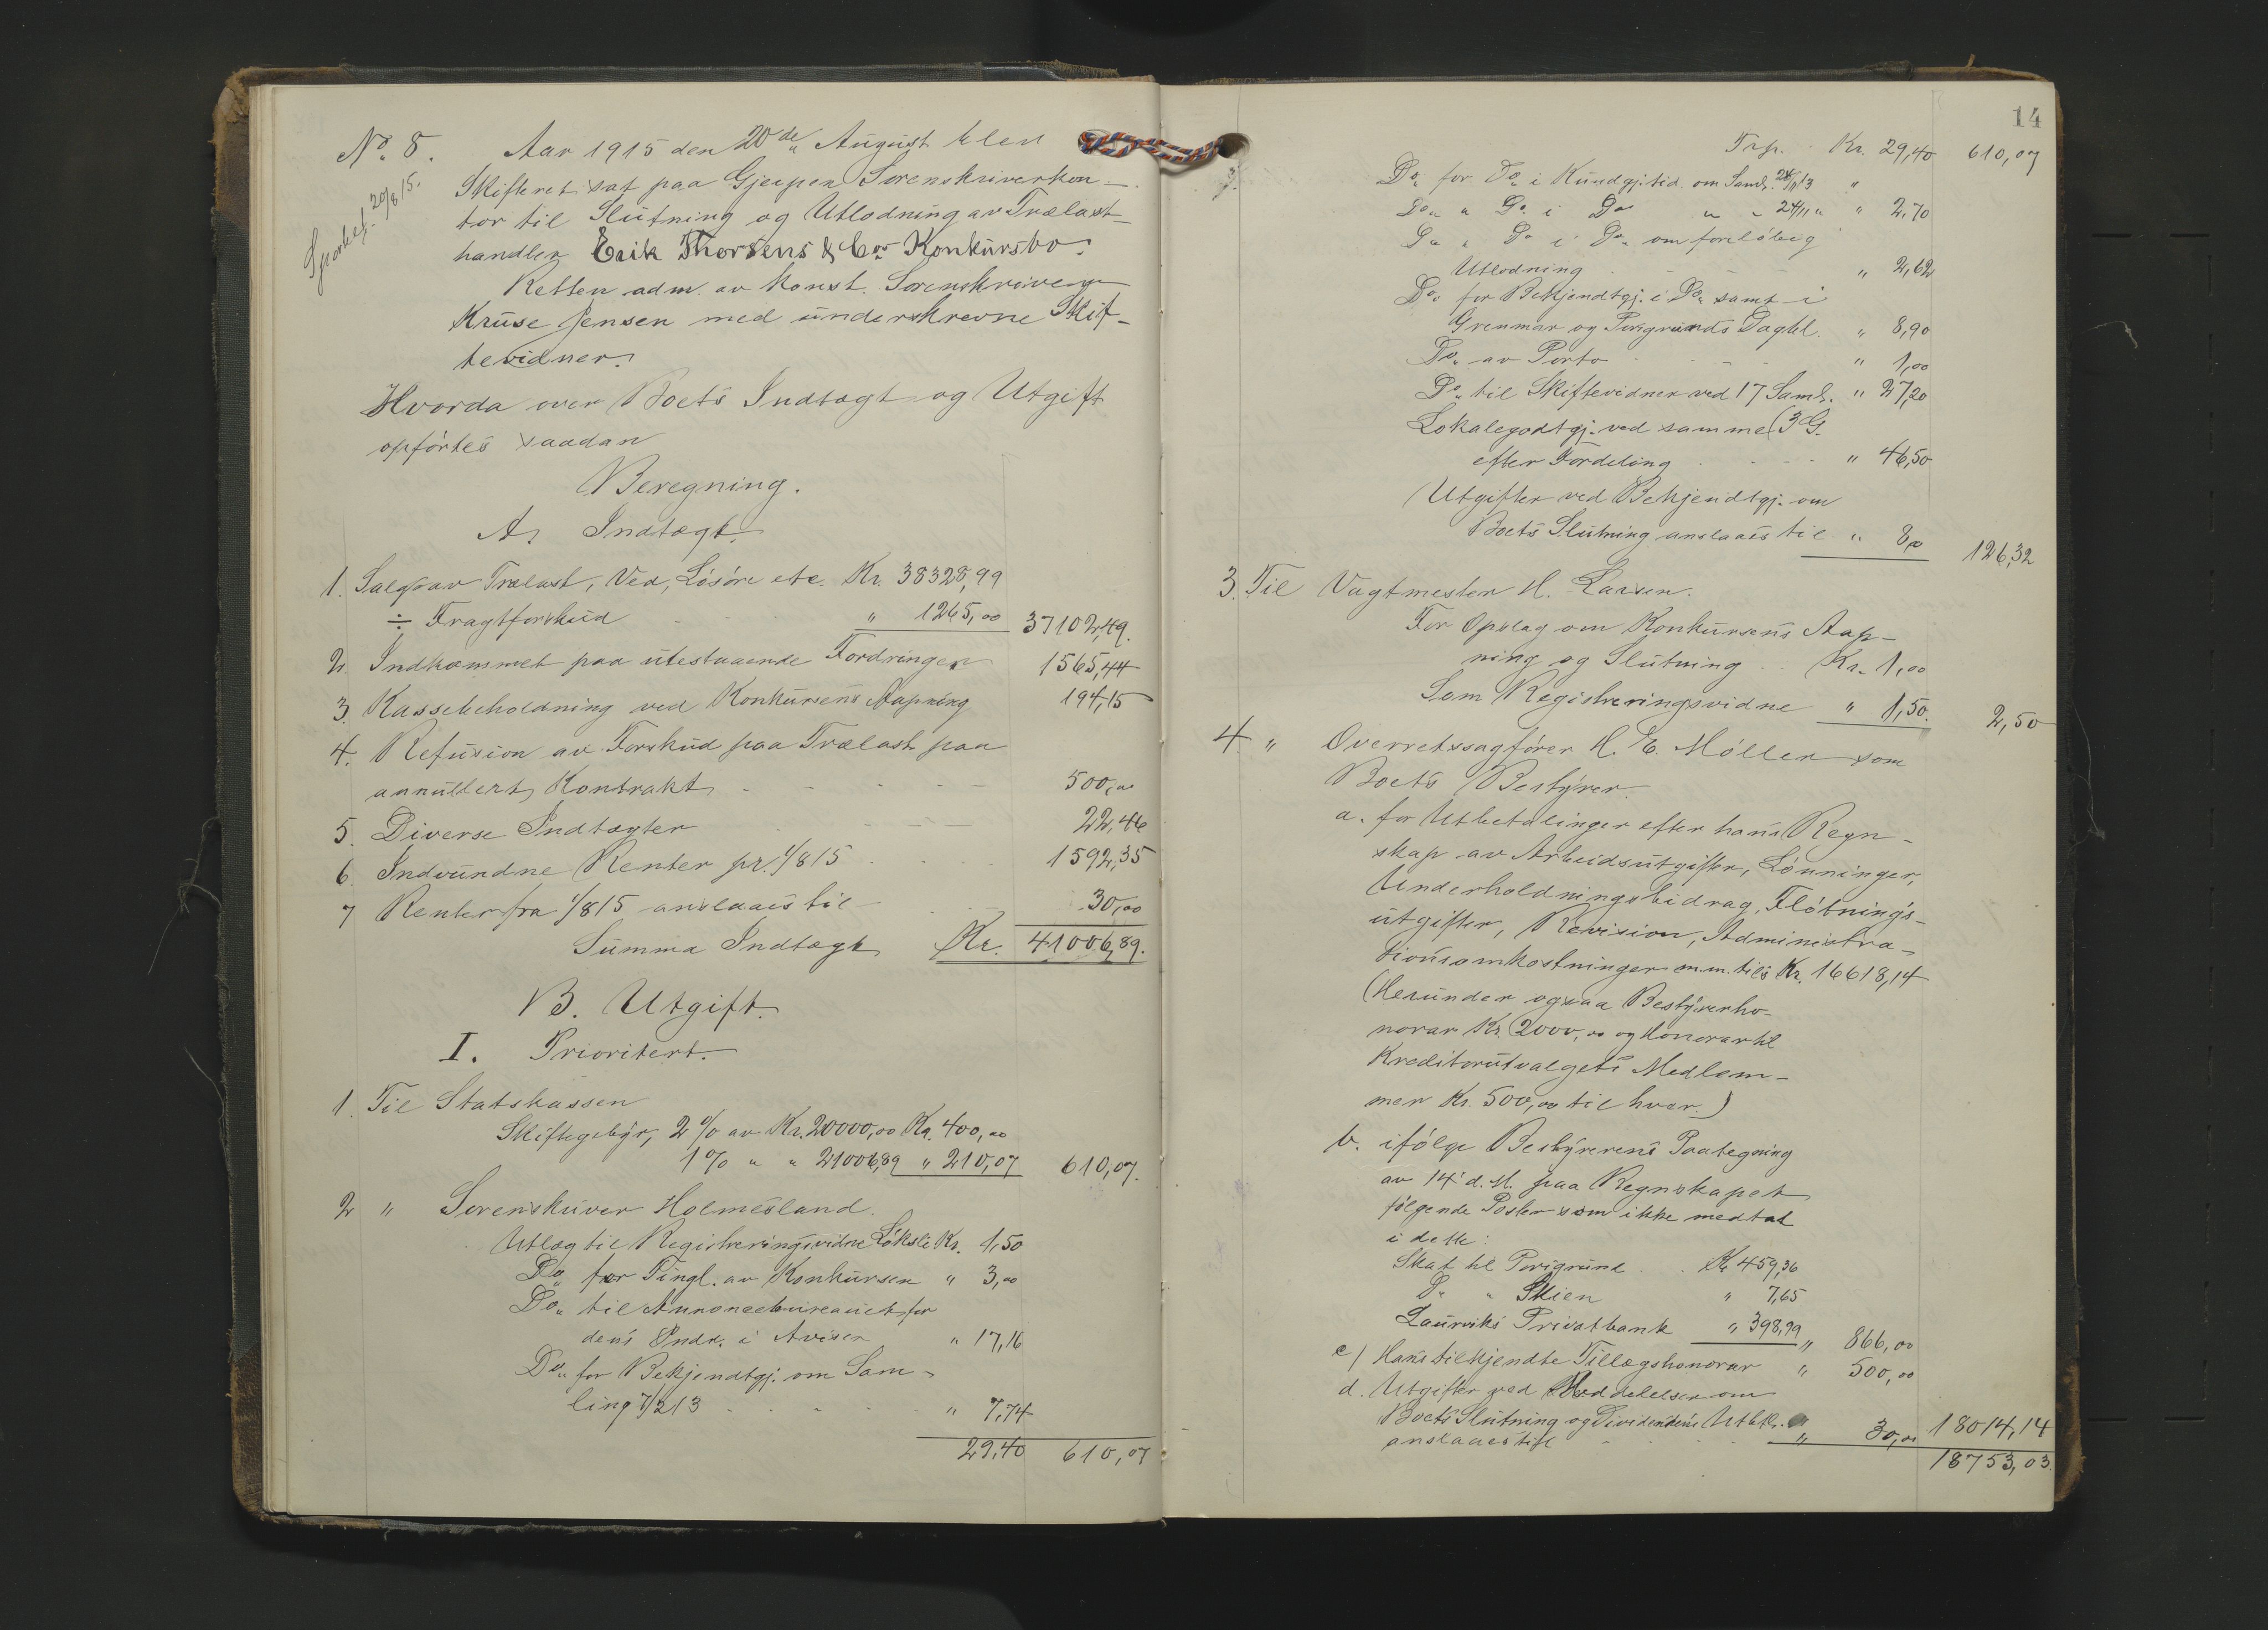 No. 8. Aar 1915 den 20de August blev
20/8 15.
Skifteret sat paa Gjerpen Sorenskriverkon-
tor til Slutning og Utlodning av Trælast-
handler Erik Thorsens & Co.s Konkursbo.
Retten adm. av konst. Sorenskriver
Kruse Jensen med underskrevne Skif-
tevidner.
Hvorda over Boets Indtægt og Utgift
opførtes saadan
Beregning.
A. Indtægt.
1. Salg av Trælast, Ved, Løsøre etc. Kr. 38328,99
÷ Fragtforskud " 1265,00 37102,49.
2. Indkommet paa utestaaende Fordringer 1565,44
3. Kassebeholdning ved Konkursens Aapning 194,15
4. Refusion av Forskud paa Trælast paa
annullert Kontrakt 500,00
5. Diverse Indtægter 22,46
6. Indvundne Renter pr. 1/8 15 1592,35
7 Renter fra 1/8 15 anslaaes til 30,00
Summa Indtægt Kr. 41006,89.
B. Utgift.
I. Prioritert.
1. Til Statskassen
Skiftegebyr, 2 % av Kr. 20000,00 Kr. 400,00
1 % " " 21006,89 " 210,07 610,07.
2 " Sorenskriver Holmesland.
Utlæg til Registreringsvidne Kr. 1,50
Do. for Tingl. av Konkursen " 3,00
Do. til Annoncebureauet for
dens Indr. i Aviser " 17,16
Do. for Bekjendtgj. om Sam-
ling 7/2 13 " 7,74
29,40 610,07
14
Trsp. Kr. 29,40 610,07
Do. for Do. i Kundgj.tid. om Saml. 13 "
Do. " Do. i Do. " " 24/11 " " 2,70
Do. " Do. i Do. om foreløbig
Utlodning " 2,62
Do. for Bekjendtgj. i Do. samt i
Grenmar og Porsgrunds Dagbl. " 8,90
Do. av Porto " 1,00
Do. til Skiftevidner ved 17 Saml. " 27,20
Lokalegodtgj. ved samme (3 G.
efter Fordeling " 46,50
Utgifter ved Bekjendtgj. om
Boets Slutning anslaaes til " 8,00 126,32
3. Til Vagtmester H. Larsen.
For Opslag om Konkursens Aap-
ning og Slutning Kr. 1,00
Som Registreringsvidne " 1,50. 2,50
4. " Overretssagfører H. E. Møller som
Boets Bestyrer.
a. for Utbetalinger efter hans Regn-
skap av Arbeidsutgifter, Lønninger,
Underholdningsbidrag, Fløtnings-
utgifter, Revision, Administra-
tionsomkostninger m.m. tils. Kr. 16618,14
(Herunder ogsaa Bestyrerho-
norar Kr. 2000,00 og Honorar til
Kreditorutvalgets Medlem-
mer Kr. 500,00 til hver.)
b. ifølge Bestyrerens Paategning
av 14' d. M. paa Regnskapet
følgende Poster som ikke medtat
i dette:
Skat til Porsgrund Kr 459,36
Do " Skien " 7,65
Laurviks Privatbank " 398,99 " 866,00
c) Hans tilkjendte Tillægshonorar " 500,00
d. Utgifter ved Meddelelser om
Boets Slutning og Dividendens Utbtl.
anslaaes til " 30,00 18014,14
18753,03.